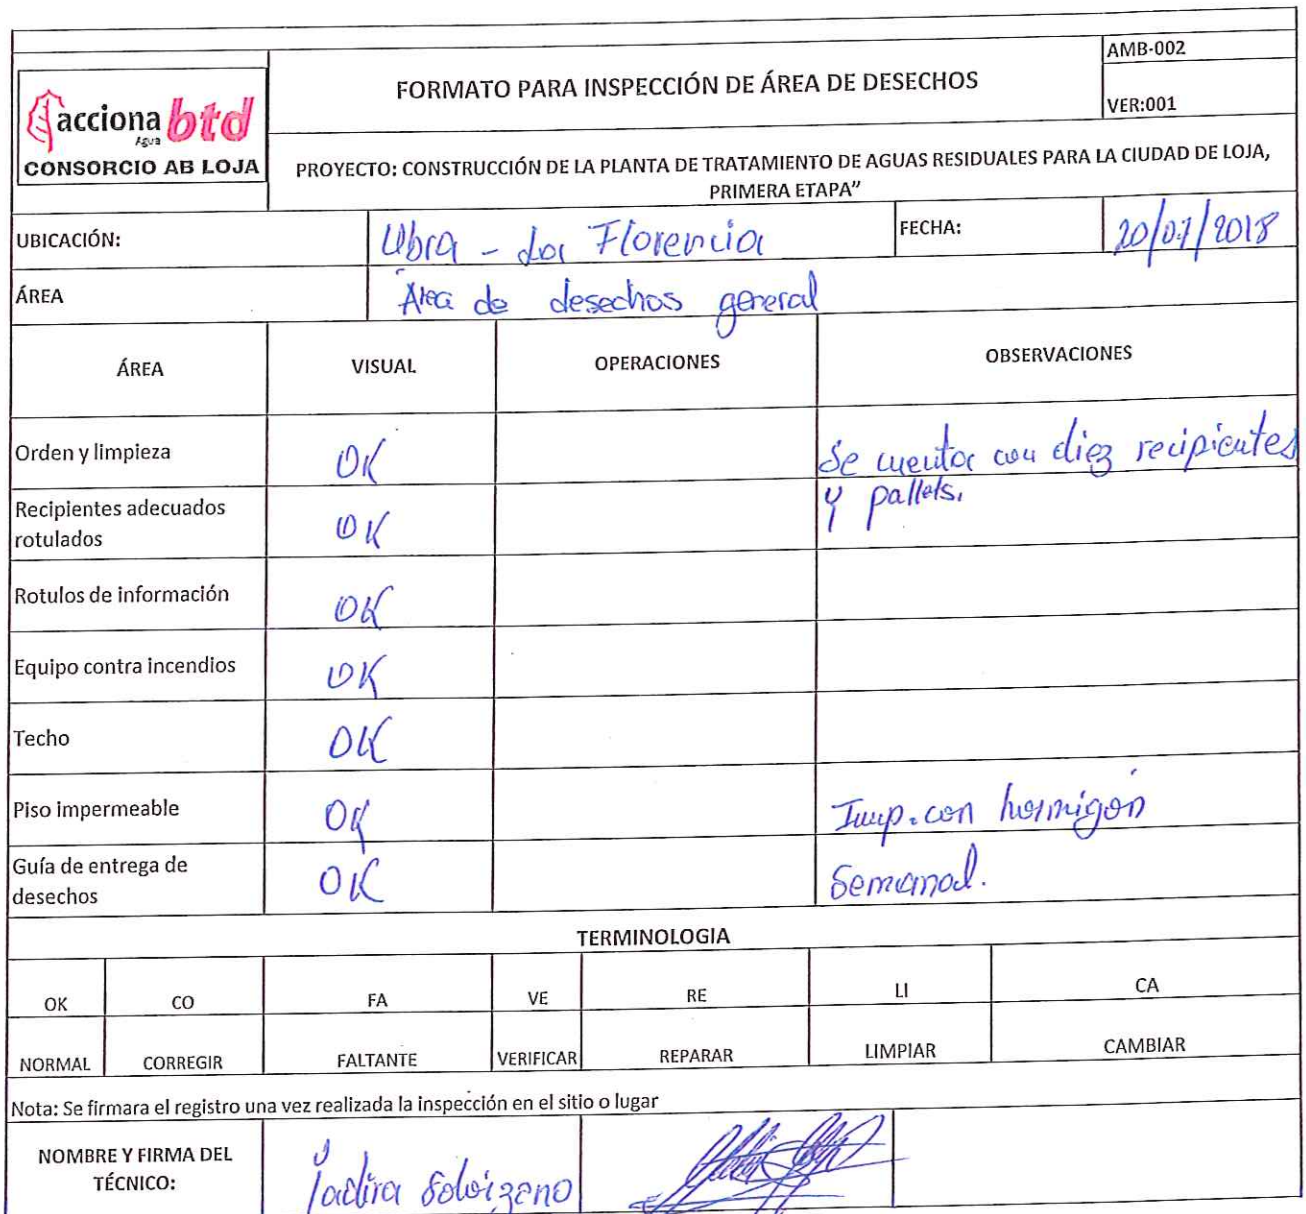 AMB-002
FORMATO PARA INSPECCIÓN DE ÁREA DE DESECHOS
VER:001
acciona btd
Agua
CONSORCIO AB LOJA
PROYECTO: CONSTRUCCIÓN DE LA PLANTA DE TRATAMIENTO DE AGUAS RESIDUALES PARA LA CIUDAD DE LOJA,
PRIMERA ETAPA”
UBICACIÓN: Obra - La Florencia FECHA: 20/07/2018
ÁREA Área de desechos general
ÁREA VISUAL OPERACIONES OBSERVACIONES
Orden y limpieza OK Se cuenta con diez recipientes
y pallets.
Recipientes adecuados
rotulados OK
Rotulos de información OK
Equipo contra incendios OK
Techo OK
Piso impermeable OK Imp. con hormigón
Guía de entrega de
desechos OK Semanal.
TERMINOLOGIA
OK CO FA VE RE LI CA
NORMAL CORREGIR FALTANTE VERIFICAR REPARAR LIMPIAR CAMBIAR
Nota: Se firmara el registro una vez realizada la inspección en el sitio o lugar
NOMBRE Y FIRMA DEL
TÉCNICO: